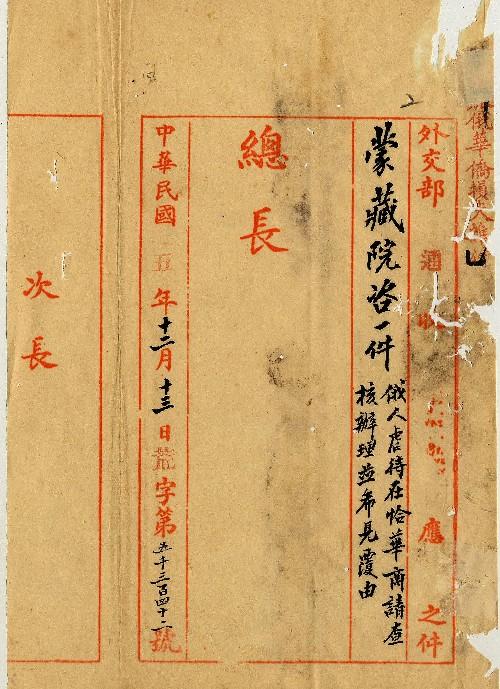 華僑損
外交部 應 之件
蒙藏院咨一件
俄人虐待在恰華商請查
核辦理並希見覆由
總長
中華民國五年十二月十三日 字第五千三百四十二號
次長